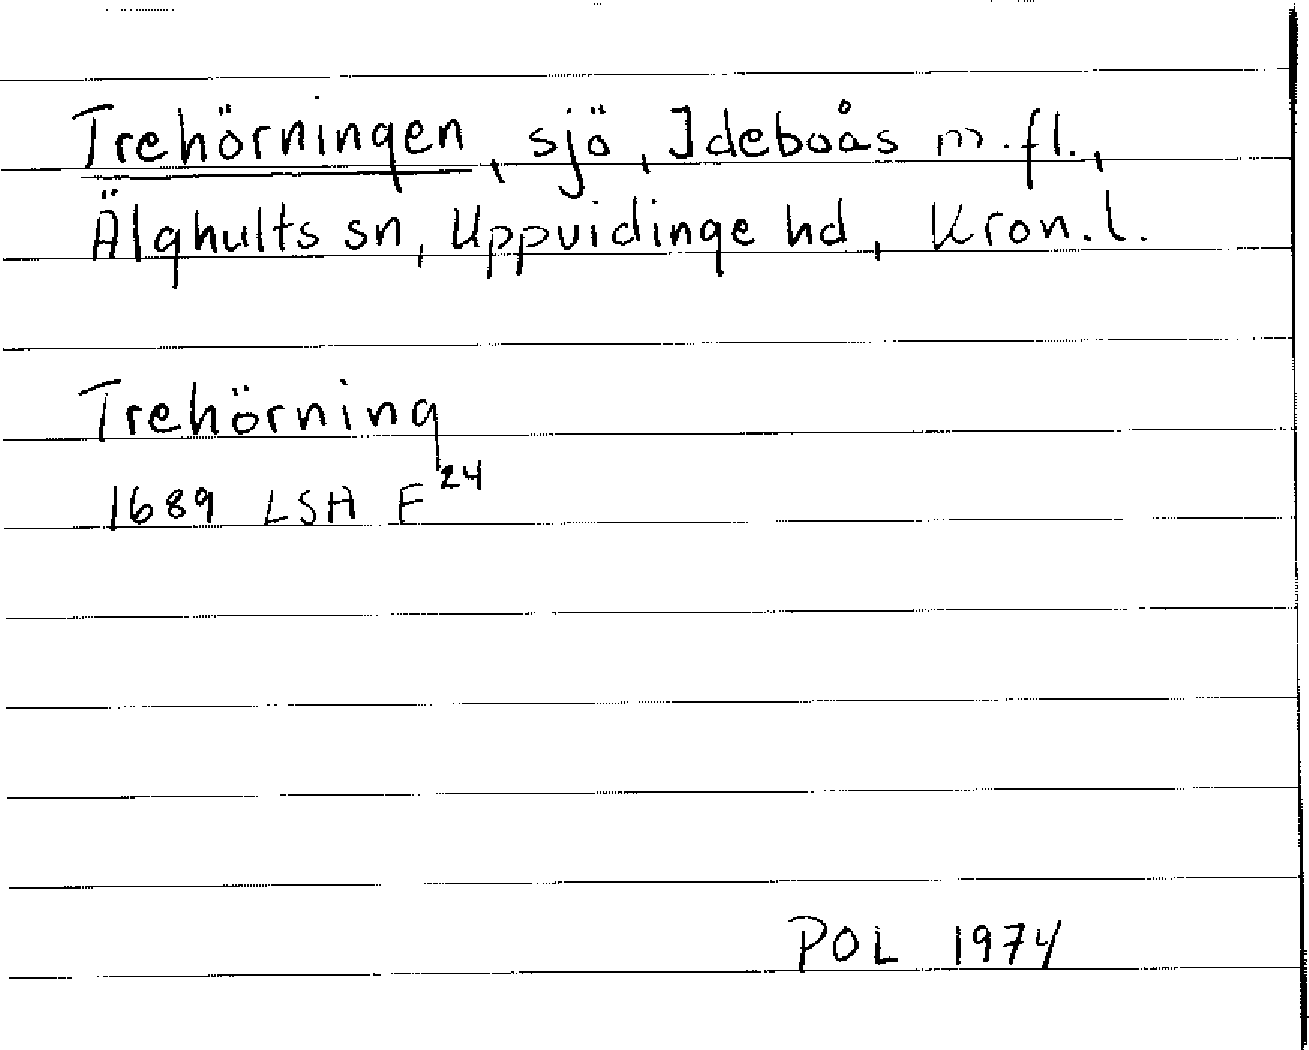 Trehörningen, sjö, Ideboås m.fl.,
Älghults sn, Uppvidinge hd, Kron.l.
Trehörning
1689 LSA F 24
POL 1974